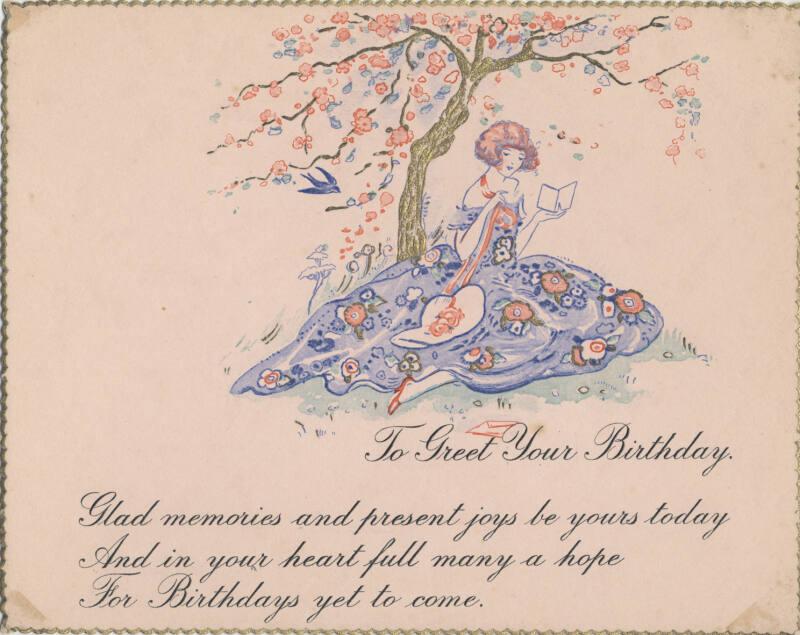 To Greet Your Birthday.
Glad memories and present joys be yours today
And in your heart full many a hope
For Birthdays yet to come.